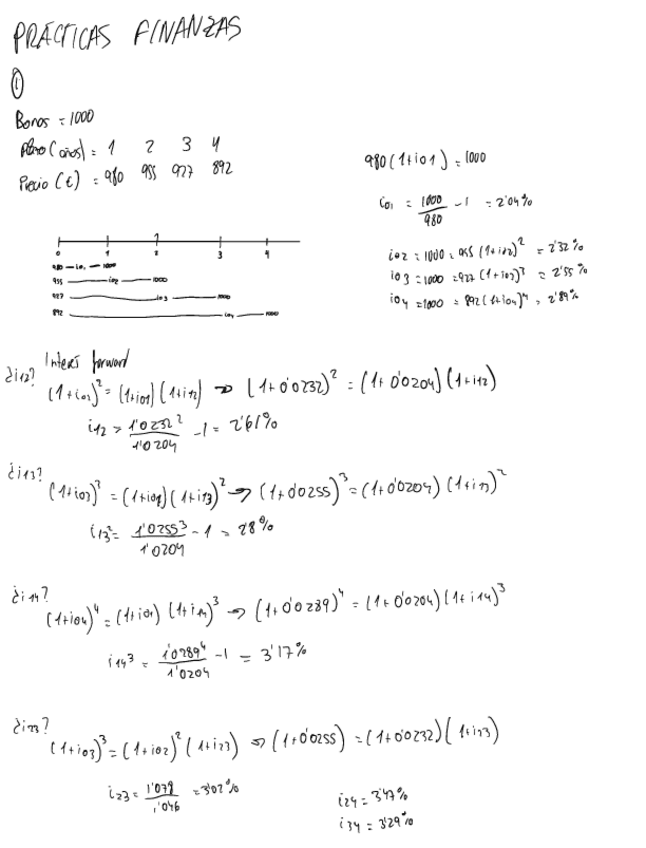 PRÁCTICAS FINANZAS
①
Bonos = 1000
Plazo (años) = 1 2 3 4
Precio (€) = 980 955 927 892
980 (1+i01) = 1000
i01 = 1000/980 - 1 = 2'04%
i02 = 1000 = 955 (1+i02)² = 2'32%
i03 = 1000 = 927 (1+i03)³ = 2'55%
i04 = 1000 = 892 (1+i04)⁴ = 2'89%
0 1 2 3 4
980 i01 1000
955 i02 1000
927 i03 1000
892 i04 1000
Interés forward
¿i12?
(1+i02)² = (1+i01) (1+i12) → (1+0'0232)² = (1+0'0204) (1+i12)
i12 = 1'0232²/1'0204 - 1 = 2'61%
¿i13?
(1+i03)³ = (1+i01) (1+i13)² → (1+0'0255)³ = (1+0'0204) (1+i13)²
i13² = 1'0255³/1'0204 - 1 = 28%
¿i14?
(1+i04)⁴ = (1+i01) (1+i14)³ → (1+0'0289)⁴ = (1+0'0204) (1+i14)³
i14³ = 1'0289⁴/1'0204 - 1 = 3'17%
¿i23?
(1+i03)³ = (1+i02)² (1+i23) → (1+0'0255) = (1+0'0232) (1+i23)
i23 = 1'078/1'046 = 3'02%
i24 = 3'47%
i34 = 3'29%